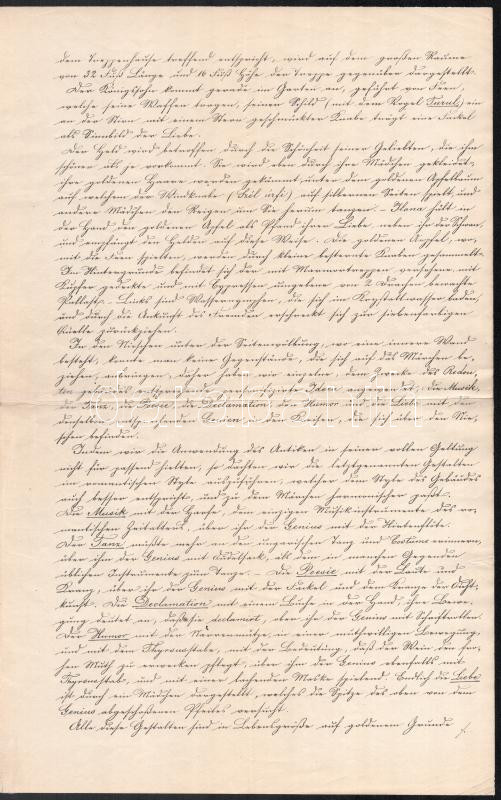 dem Treppenhause treffend entspricht, wird auf dem großen Raume
von 32 Fuß Länge und 16 Fuß Höhe der Treppe gegenüber dargestellt.
Der Königssohn kommt gerade im Garten an, geführt von Feen,
welche seine Waffen tragen, seinen Schild (mit dem Vogel Turul,) ein
an der Stirn mit einem Stern geschmückter Knabe trägt eine Fackel
als Sinnbild der Liebe.
Der Held wird betroffen durch die Schönheit seiner Geliebten, die ihm
schöner als je vorkommt. Sie wird eben durch ihre Mädchen gekleidet,
ihre goldenen Haare werden gekämmt, unter dem goldenen Apfelbaum
auf welchem der Windknabe (Szél úrfi) auf silbernen Saiten spielt, und
andere Mädchen den Reigen um Sie herum tanzen. – Ilona hält in
der Hand den goldenen Apfel als Pfand ihrer Liebe, neben ihr der Schwan,
und empfängt den Helden auf diese Weise. Die goldenen Äpfel, wo-
mit die Feen spielten, werden durch kleine besternte Knaben gesammelt.
Im Hintergrunde befindet sich der mit Marmortreppen versehene, mit
Kupfer gedeckte und mit Cypressen umgebene von 2 Drachen bewachte
Pallast. – Links sind Wassernymphen, die sich im Krystallwasser baden,
und durch die Ankunft des Fremden erschreckt sich zur siebenfarbigen
Quelle zurückziehen.
In den Nischen unter der Seitenwölbung, wo eine innere Wand
besteht, konnte man keine Gegenstände, die sich auf das Märchen be-
ziehen, anbringen, daher haben wir einzelne, dem Zwecke des Redou-
ten gebäudes entsprechende personifizirte Ideen angewendet: die Musik,
der Tanz, die Poesie, die Declamation, den Humor und die Liebe mit den
denselben entsprechenden Genien in den Kreisen, die sich über den Ni-
schen befinden.
Indem wir die Anwendung des Antiken in seiner vollen Geltung
nicht für passend hielten, so dachten wir die letztgenannten Gestalten
im romantischen Style auszuführen, welcher dem Style des Gebäudes
auch besser entspricht, und zu den Märchen harmonischer paßt.
Die Musik mit der Harfe, dem einzigen Musikinstrumente des ro-
mantischen Zeitalters, über ihr der Genius mit der Hirtenflöte.
Der Tanz müßte mehr an den ungarischen Tanz und Costume erinnern,
über ihm der Genius mit Dudelsack, als dem in manchen Gegenden
üblichen Instrumente zum Tanze. – Die Poesie mit der Laute und
Kranz, über ihr der Genius mit der Fackel und dem Kranze der Dicht-
kunst. Die Declamation mit einem Buche in der Hand, ihre Bewe-
gung deutet an, daß sie declamirt, ober ihr der Genius mit Schriftrollen.
Der Humor mit der Narrenmütze, in einer muthwilligen Bewegung,
und mit dem Thyrsusstabe, mit der Bedeutung, daß der Wein den fro-
hen Muth zu erwecken pflegt, über ihm der Genius ebenfalls mit
Thyrsusstab, und mit einer lachenden Maske spielend. Endlich die Liebe
ist durch ein Mädchen dargestellt, welches die Spitze des oben von dem
Genius abgeschoßenen Pfeiles versucht.
Alle diese Gestalten sind in Lebensgröße auf goldenem Grunde